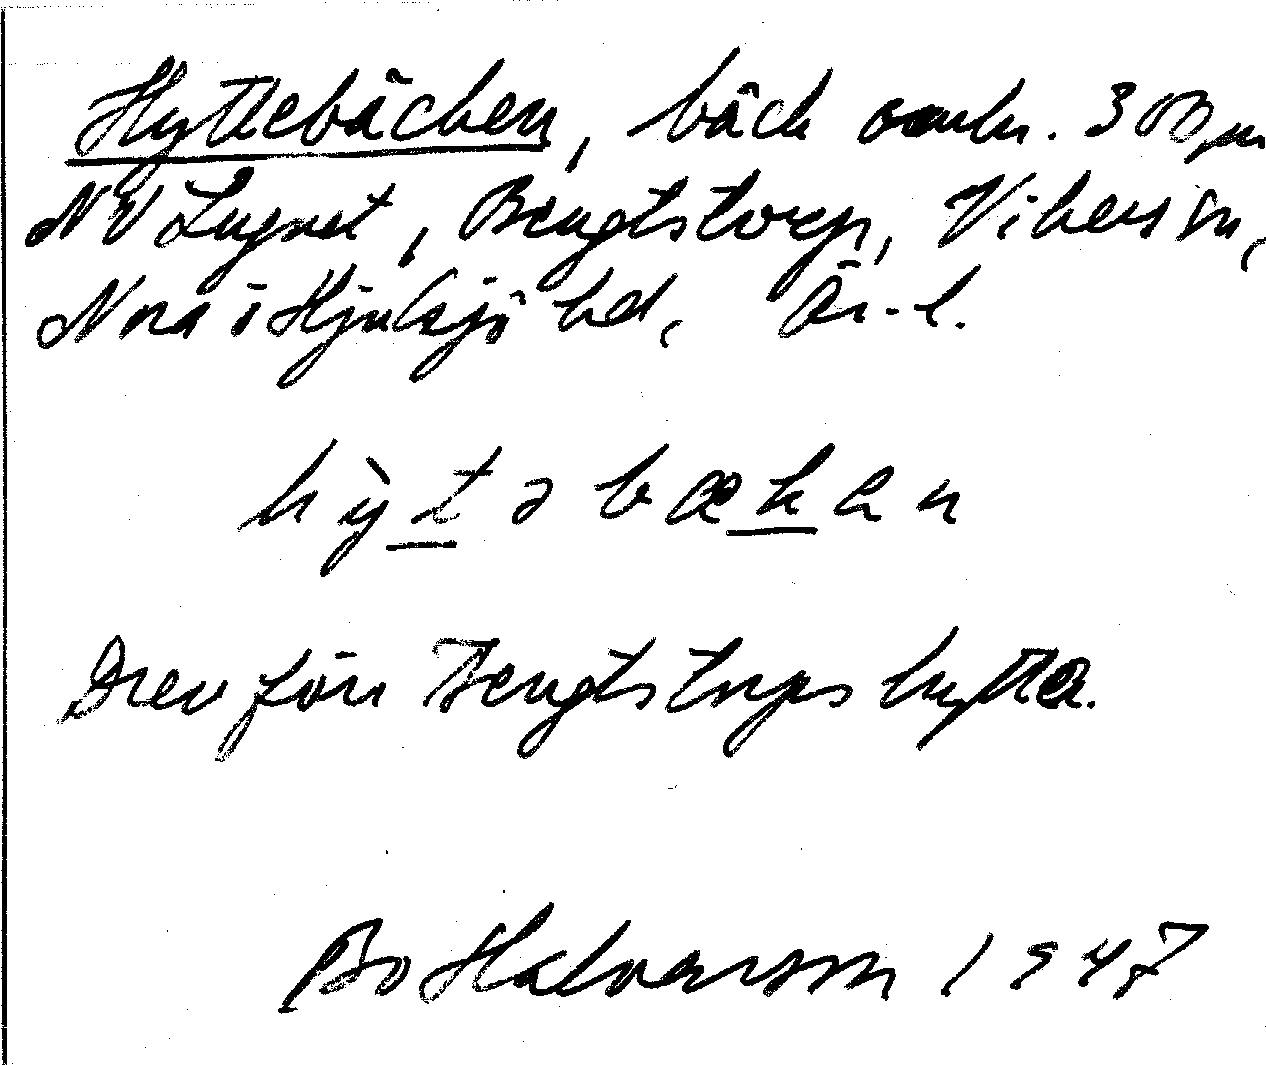 Hyttebäcken, bäck omkr. 300 m
NV Lugnet, Bengtstorp, Vikers sn,
Nora o Hjulsjö hd, Ör. l.
hỳtəbækan
Drev förr Bengtstorps hytta.
Bo Halvarson 1947